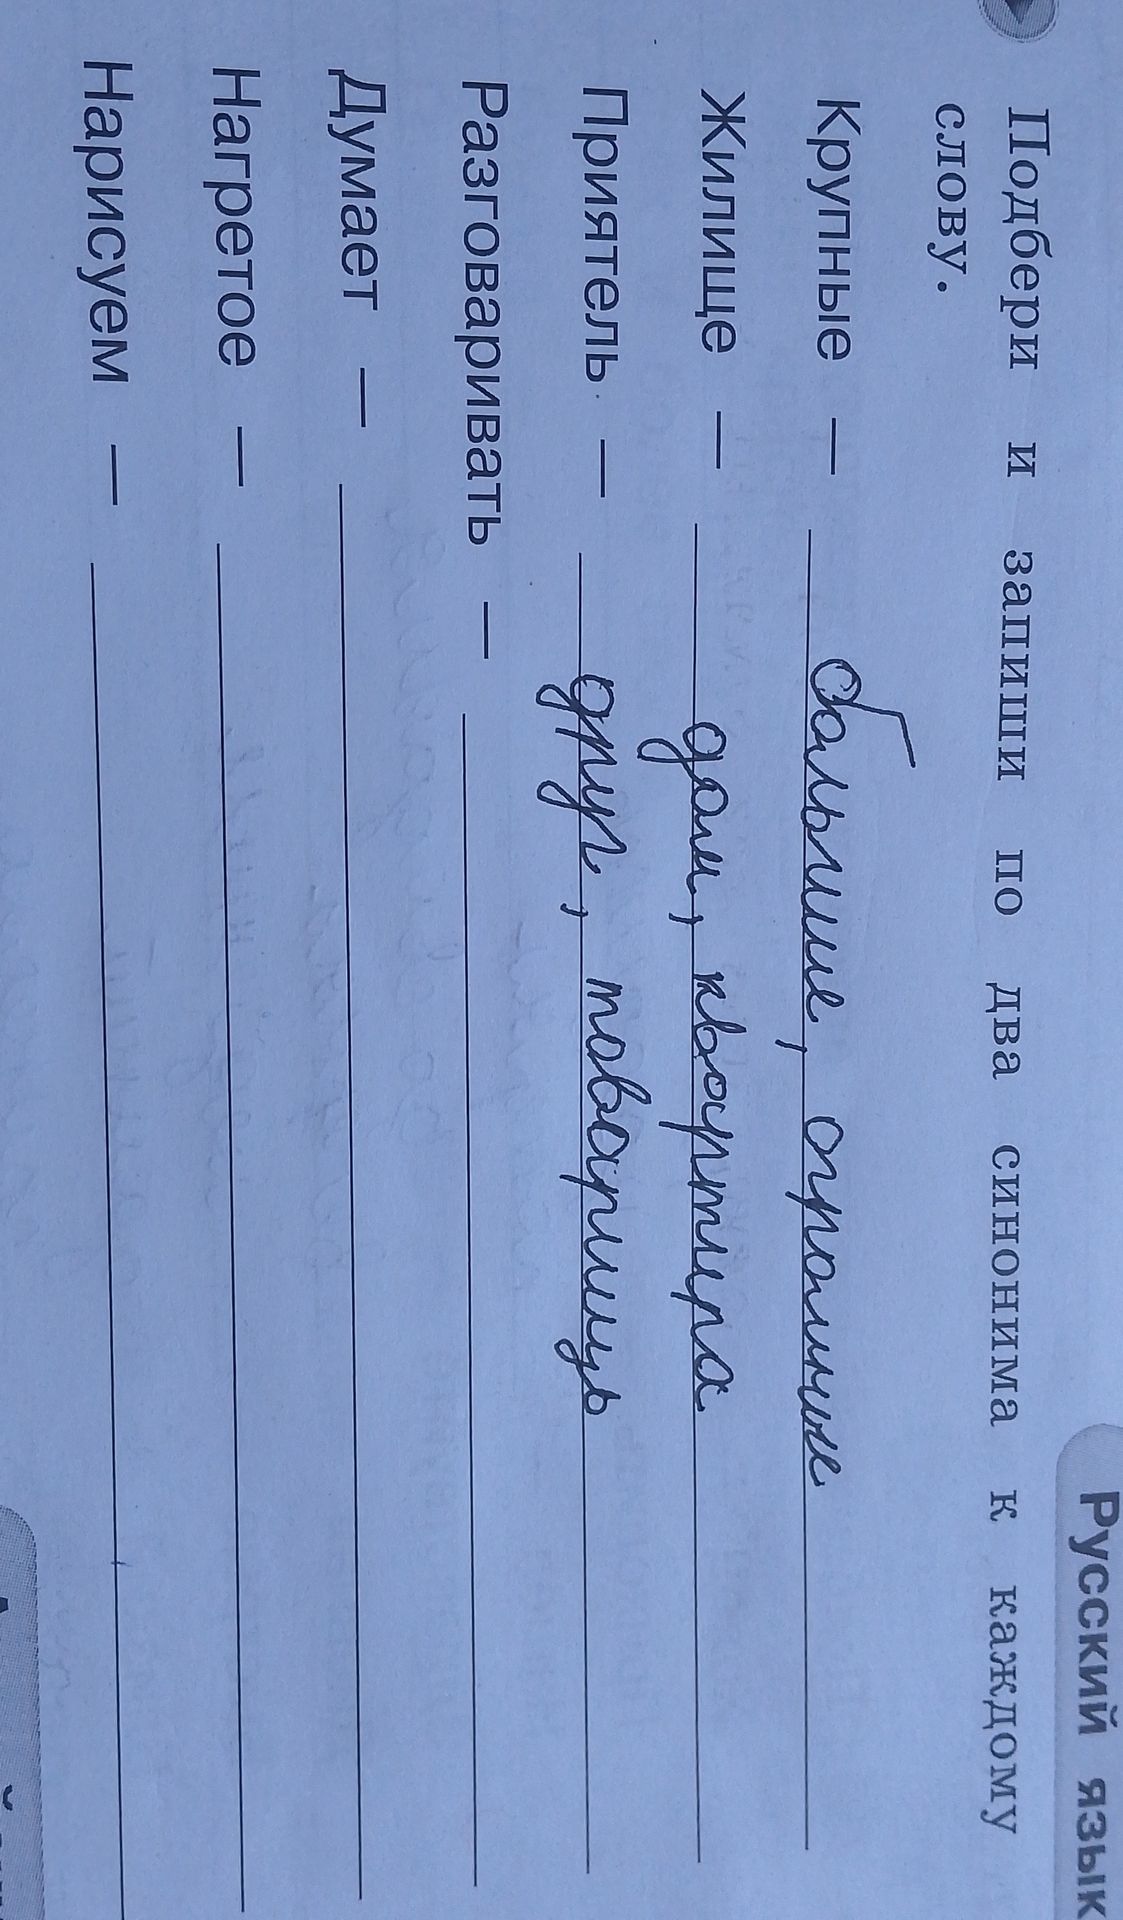 Русский язык
Подбери и запиши по два синонима к каждому
слову.
Крупные — большие, огромные
Жилище — дом, квартира
Приятель — друг, товарищ
Разговаривать —
Думает —
Нагретое —
Нарисуем —